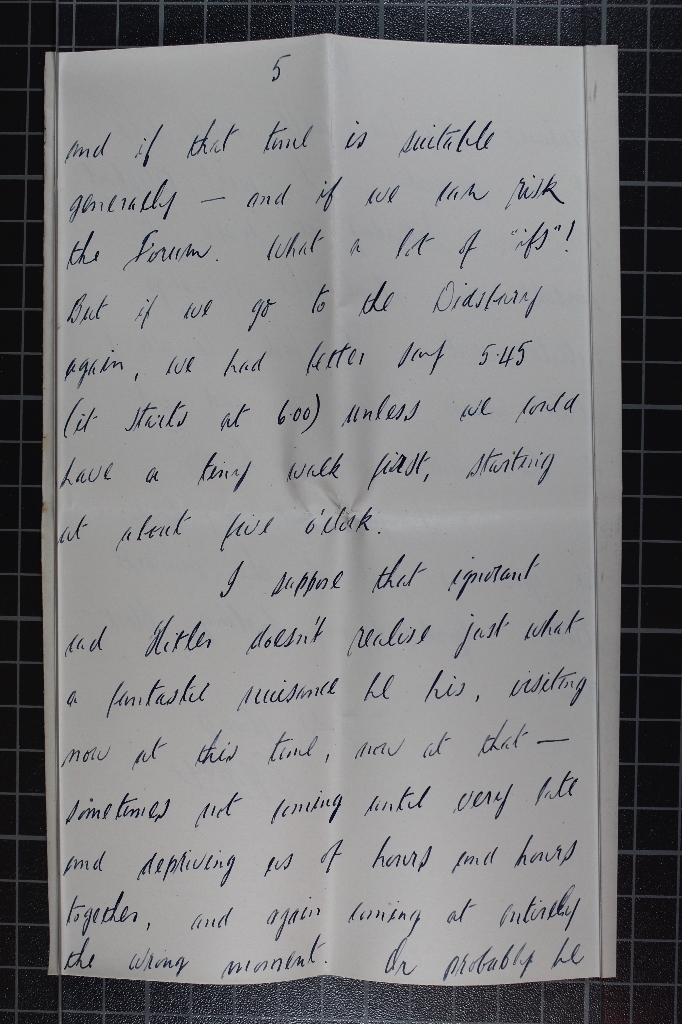 5
and if that time is suitable
generally — and if we can risk
the Forum. What a lot of "ifs"!
But if we go to the Didsbury
again, we had better say 5.45
(it starts at 6.00) unless we could
have a tiny walk first, starting
at about five o'clock.
I suppose that ignorant
cad Hitler doesn't realise just what
a fantastic nuisance he his, visiting
now at this time, now at that —
sometimes not coming until very late
and depriving us of hours and hours
together, and again coming at entirely
the wrong moment. Or probably he